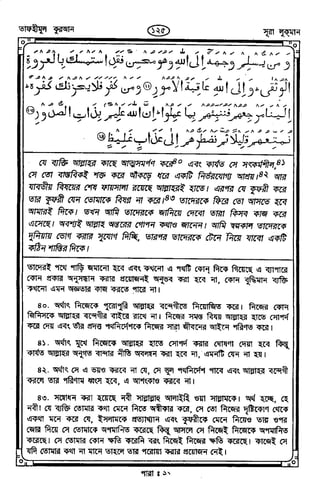 তাফহীমুল কুরআন
১২৫
সূরা লুকমান
وَمَنْ يُّسْلِمْ وَجْهَهٗٓ اِلَى اللهِ وَهُوَ مُحْسِنٌ فَقَدِ اسْتَمْسَكَ بِالْعُرْوَةِ
الْوُثْقٰى ؕ وَاِلَى اللهِ عَاقِبَةُ الْاُمُوْرِ ۝ وَمَنْ كَفَرَ فَلَا يَحْزُنْكَ كُفْرُهٗ ؕ
اِلَيْنَا مَرْجِعُهُمْ فَنُنَبِّئُهُمْ بِمَا عَمِلُوْا ؕ اِنَّ اللهَ عَلِيْمٌۢ بِذَاتِ الصُّدُوْرِ ۝
نُمَتِّعُهُمْ قَلِيْلًا ثُمَّ نَضْطَرُّهُمْ اِلٰى عَذَابٍ غَلِيْظٍ ۝
যে ব্যক্তি আল্লাহর কাছে আত্মসমর্পণ করে৪০ এবং কার্যত সে সৎকর্মশীল,৪১
সে তো বাস্তবিকই শক্ত করে আঁকড়ে ধরে একটি নির্ভরযোগ্য আশ্রয়।৪২ আর
যাবতীয় বিষয়ের শেষ ফায়সালা রয়েছে আল্লাহরই হাতে। এরপর যে কুফরী করে
তার কুফরী যেন তোমাকে বিষণ্ন না করে।৪৩ তাদেরকে ফিরে তো আসতে হবে
আমারই দিকে। তখন আমি তাদেরকে জানিয়ে দেবো তারা কিসব কাজ করে
এসেছে। অবশ্যই আল্লাহ অন্তরের গোপন কথাও জানেন। আমি স্বল্পকাল তাদেরকে
দুনিয়ায় ভোগ করার সুযোগ দিচ্ছি, তারপর তাদেরকে টেনে নিয়ে যাবো একটি
কঠিন শাস্তির দিকে।
তাদেরই পথে পাড়ি জমানো হবে এবং কখনো এ পথটি কোন্ দিকে গিয়েছে এ ব্যাপারে
কোন প্রকার অনুসন্ধান করার প্রয়োজনই অনুভব করা হবে না, কোন বুদ্ধিমান ব্যক্তি
কখনো এমন অজ্ঞতার কাজ করতে পারে না।
৪০. অর্থাৎ নিজেকে পুরোপুরি আল্লাহর বন্দেগীতে নিয়োজিত করে। নিজের কোন
জিনিসকে আল্লাহর বন্দেগীর বাইরে রাখে না। নিজের সমস্ত বিষয় আল্লাহর হাতে সোপর্দ
করে দেয় এবং তাঁর প্রদত্ত পথনির্দেশকে নিজের সারা জীবনের আইনে পরিণত করে।
৪১. অর্থাৎ মুখে নিজেকে আল্লাহর হাতে সোপর্দ করার ঘোষণা দেয়া হবে কিন্তু
কার্যত আল্লাহর অনুগত বান্দার নীতি অবলম্বন করা হবে না, এমনটি যেন না হয়।
৪২. অর্থাৎ সে এ ভয়ও করবে না যে, সে ভুল পথনির্দেশ পাবে এবং আল্লাহর বন্দেগী
করলে তার পরিণাম ধ্বংস হবে, এ আশংকাও করবে না।
৪৩. সম্বোধন করা হয়েছে নবী সাল্লাল্লাহু আলাইহি ওয়া সাল্লামকে। অর্থ হচ্ছে, হে
নবী! যে ব্যক্তি তোমার কথা মেনে নিতে অস্বীকার করে, সে তো নিজের দৃষ্টিকোণ থেকে
একথা মনে করে যে, ইসলামকে প্রত্যাখ্যান এবং কুফরীকে মেনে নিয়ে ও তার ওপর
জোর দিয়ে সে তোমাকে অপমানিত করেছে কিন্তু আসলে সে নিজেই নিজেকে অপমানিত
করেছে। সে তোমার কোন ক্ষতি করেনি বরং নিজেই নিজের ক্ষতি করেছে। কাজেই সে
যদি তোমার কথা না মানে তাহলে তার পরোয়া করার প্রয়োজন নেই।
পারা ঃ ২১